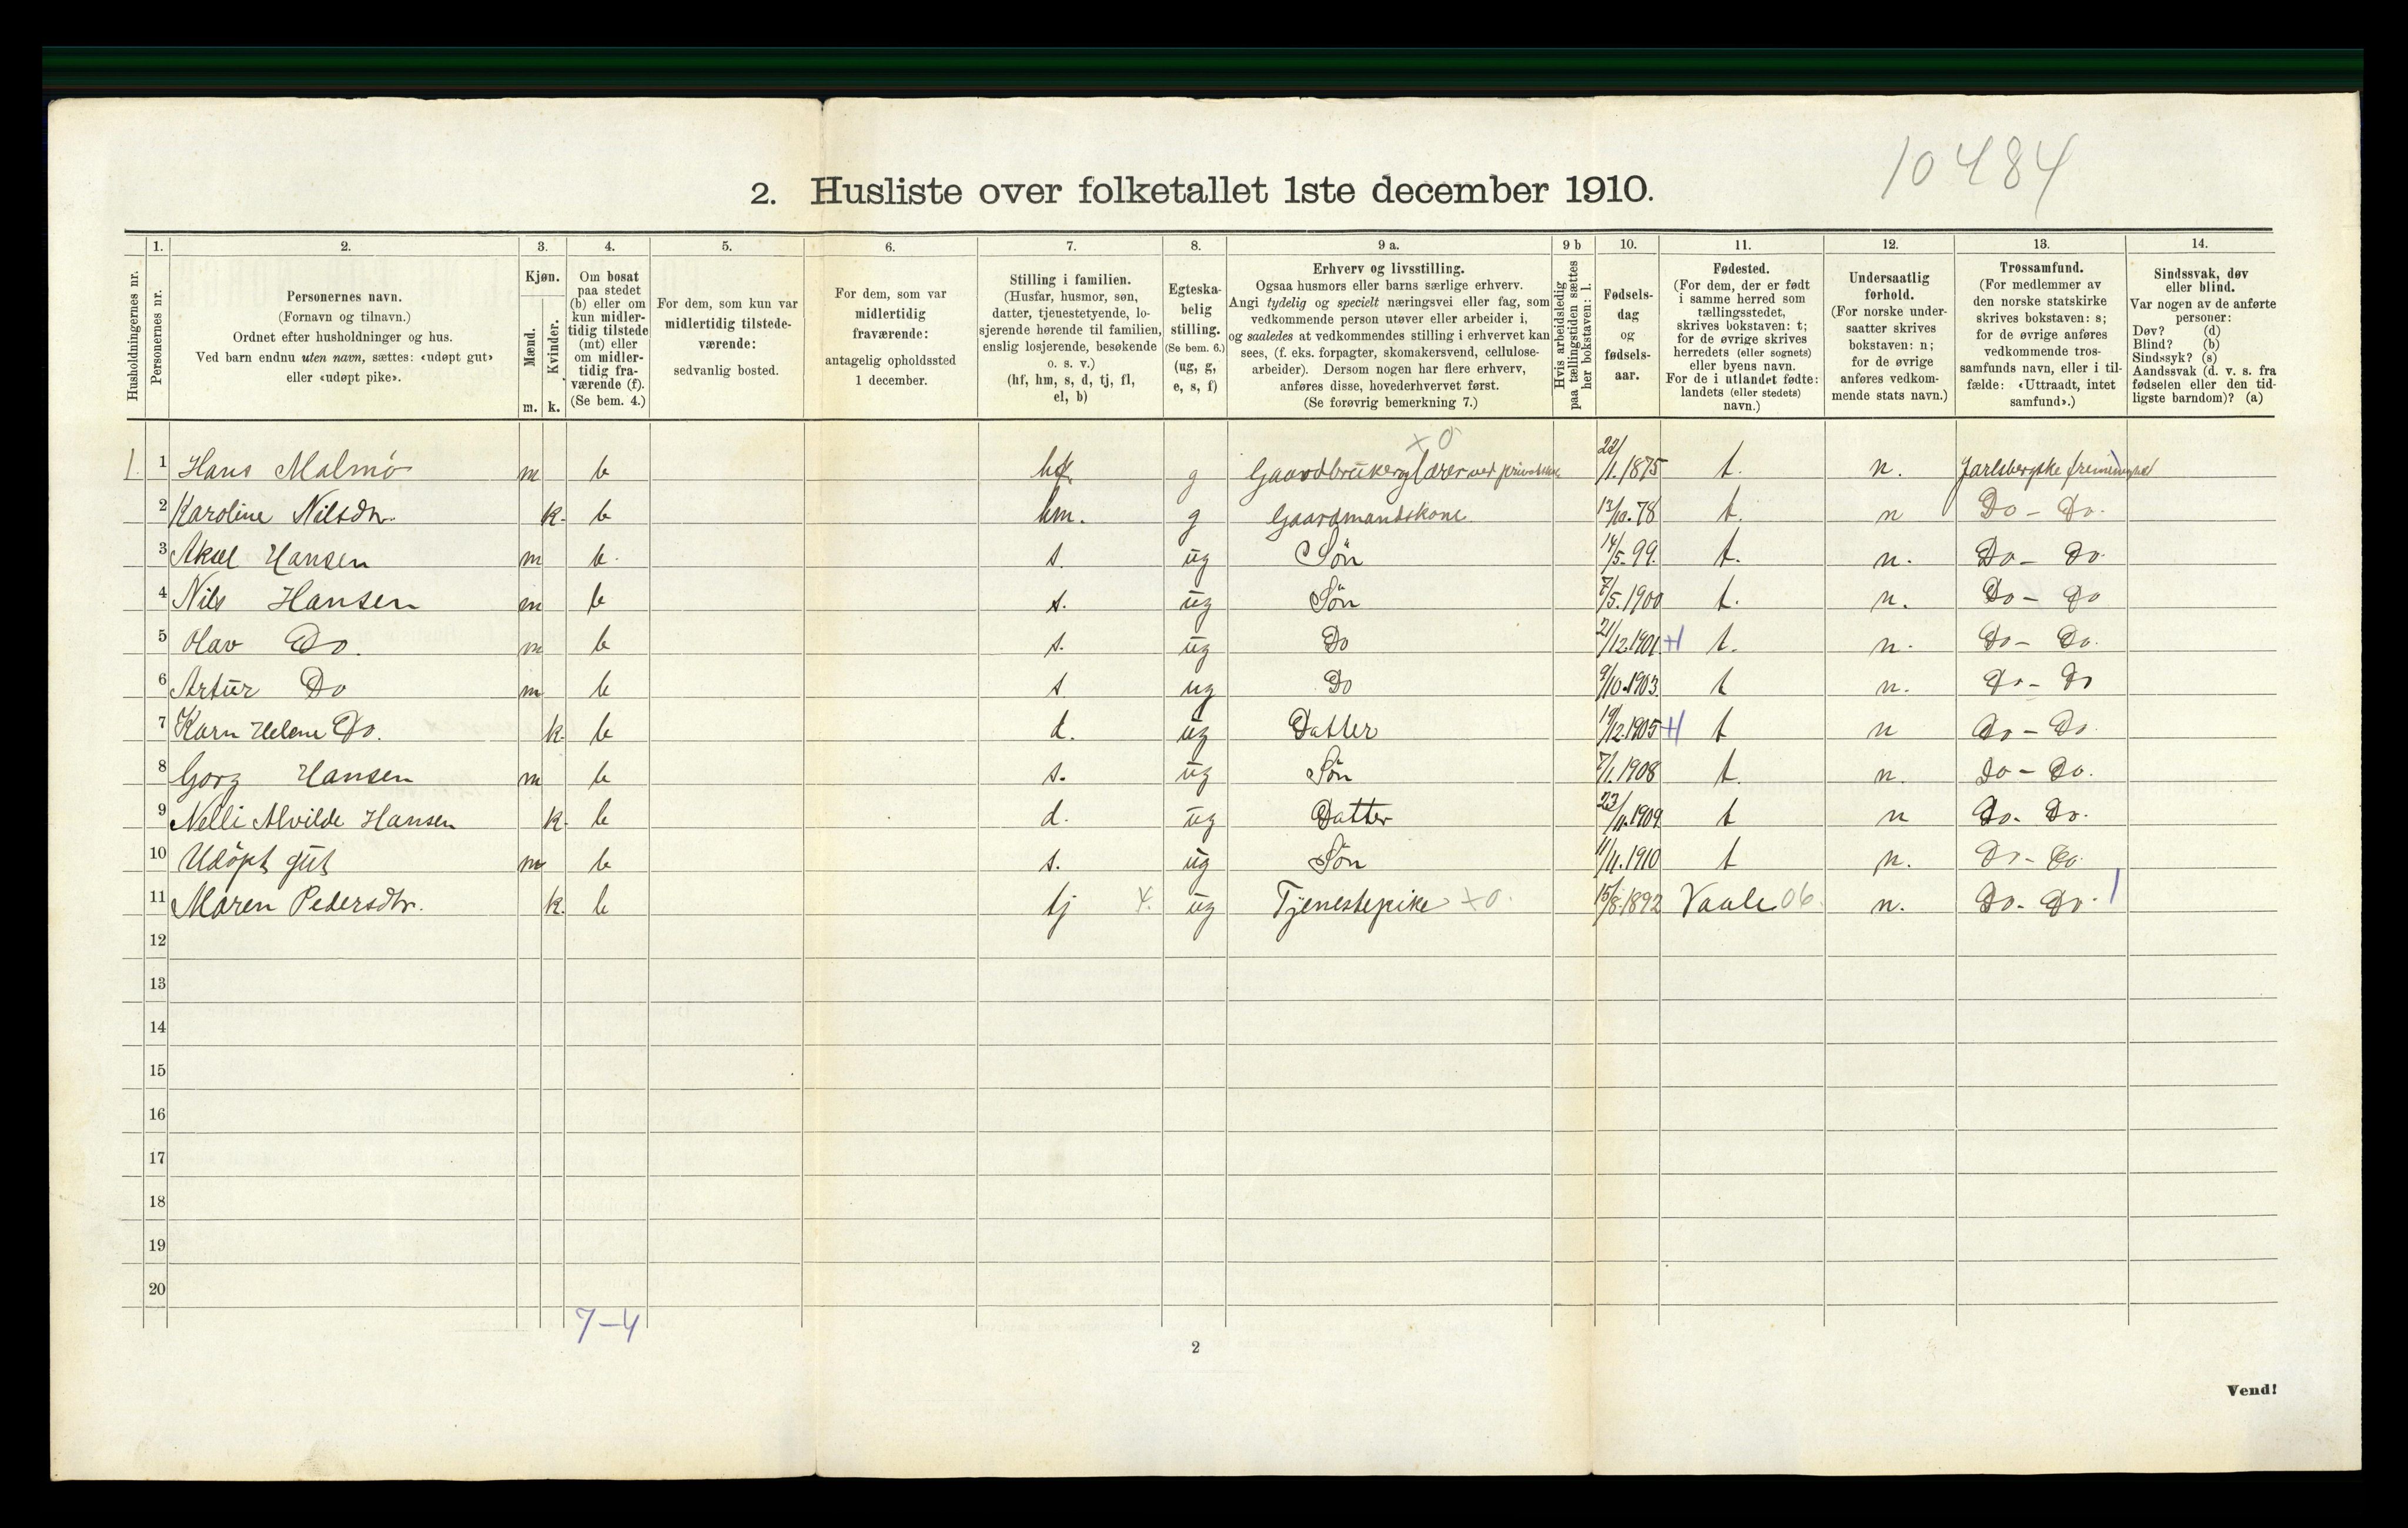 10484
2. Husliste over folketallet 1ste december 1910.
Husholdningernes nr.
1.
Personernes nr.
2.
Personernes navn.
(Fornavn og tilnavn.)
Ordnet efter husholdninger og hus.
Ved barn endnu uten navn, sættes: «udøpt gut»
eller «udøpt pike».
3.
Kjøn.
Mænd.
Kvinder.
m. k.
4.
Om bosat
paa stedet
(b) eller om
kun midler-
tidig tilstede
(mt) eller
om midler-
tidig fra-
værende (f).
(Se bem. 4.)
5.
For dem, som kun var
midlertidig tilstede-
værende:
sedvanlig bosted.
6.
For dem, som var
midlertidig
fraværende:
antagelig opholdssted
1 december.
7.
Stilling i familien.
(Husfar, husmor, søn,
datter, tjenestetyende, lo-
sjerende hørende til familien,
enslig losjerende, besøkende
o. s. v.)
(hf, hm, s, d, tj, fl,
el, b)
8.
Egteska-
belig
stilling.
(Se bem. 6.)
(ug, g,
e, s, f)
9 a.
Erhverv og livsstilling.
Ogsaa husmors eller barns særlige erhverv.
Angi tydelig og specielt næringsvei eller fag, som
vedkommende person utøver eller arbeider i,
og saaledes at vedkommendes stilling i erhvervet kan
sees, (f. eks. forpagter, skomakersvend, cellulose-
arbeider). Dersom nogen har flere erhverv,
anføres disse, hovederhvervet først.
(Se forøvrig bemerkning 7.)
9 b
Hvis arbeidsledig
paa tællingstiden sættes
her bokstaven: l.
10.
Fødsels-
dag
og
fødsels-
aar.
11.
Fødested.
(For dem, der er født
i samme herred som
tællingsstedet,
skrives bokstaven: t;
for de øvrige skrives
herredets (eller sognets)
eller byens navn.
For de i utlandet fødte:
landets (eller stedets)
navn.)
12.
Undersaatlig
forhold.
(For norske under-
saatter skrives
bokstaven: n;
for de øvrige
anføres vedkom-
mende stats navn.)
13.
Trossamfund.
(For medlemmer av
den norske statskirke
skrives bokstaven: s;
for de øvrige anføres
vedkommende tros-
samfunds navn, eller i til-
fælde: «Uttraadt, intet
samfund».)
14.
Sindssvak, døv
eller blind.
Var nogen av de anførte
personer:
Døv? (d)
Blind? (b)
Sindssyk? (s)
Aandssvak (d. v. s. fra
fødselen eller den tid-
ligste barndom)? (a)
x 0
1. 1 Hans Malmö m b hf. g Gaardbruker og lærer ved 22/1.1875 t. n. Jarlsbergske
2 Karoline Nilsdtr. k. b hm. g Gaardmandskone 13/10.78 t. n Do - Do.
3 Aksel Hansen m b. s. ug Sön 14/5.99. t. n. Do - Do.
4 Nils Hansen m b s. ug Sön 7/5.1900 t. n. Do - Do
5 Olav Do. m b s. ug Do 21/12.1901. H t. n. Do - Do.
6 Artur Do m b s. ug Do 9/10.1903. t n. Do - Do
7 Karn Helene Do. k. b d. ug Datter 19/12.1905 H t n Do - Do.
8 Gorg Hansen m b s. ug Sön 7/1.1908 t. n. Do - Do.
9 Nelli Alvilde Hansen k. b d. ug Datter 23/11.1909. t n Do. Do.
10 Udöpt gut m b s. ug Sön 11/11.1910 t n. Do - Do.
11 Maren Pedersdtr. k. b tj 4. ug Tjenestepike x0. 15/8.1892 Vaale 06. n. Do. Do. 1
12
13
14
15
16
17
18
19
20
7-4
2
Vend!